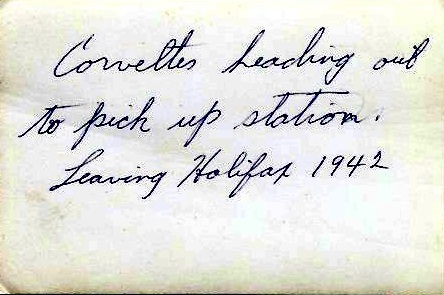 Corvettes heading out
to pick up station.
Leaving Halifax 1942